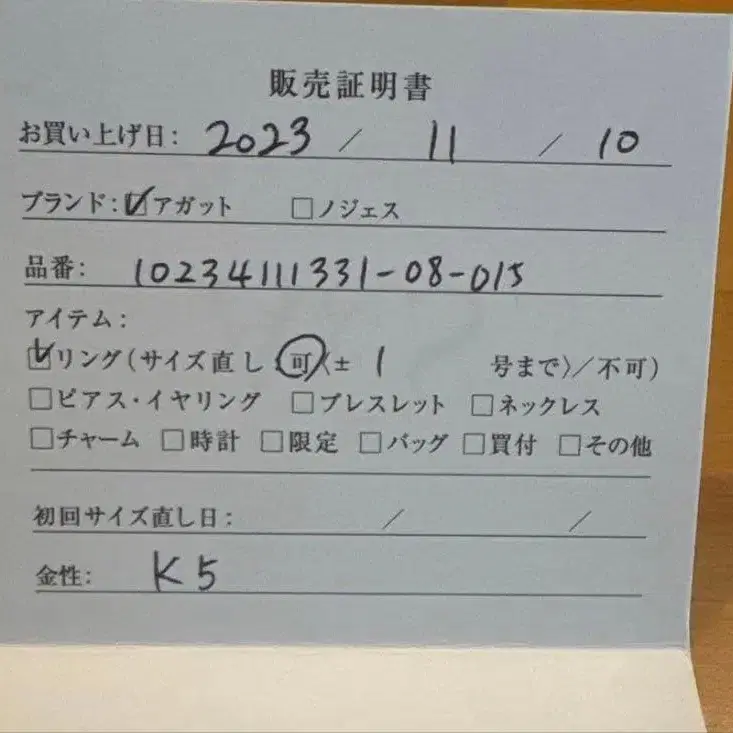 販売証明書
お買い上げ日: 2023 / 11 / 10
ブランド: ☑アガット □ノジェス
品番: 10234111331-08-015
アイテム:
☑リング(サイズ直し 可〈± 1 号まで〉/不可)
□ピアス・イヤリング □ブレスレット □ネックレス
□チャーム □時計 □限定 □バッグ □買付 □その他
初回サイズ直し日: / /
金性: K5